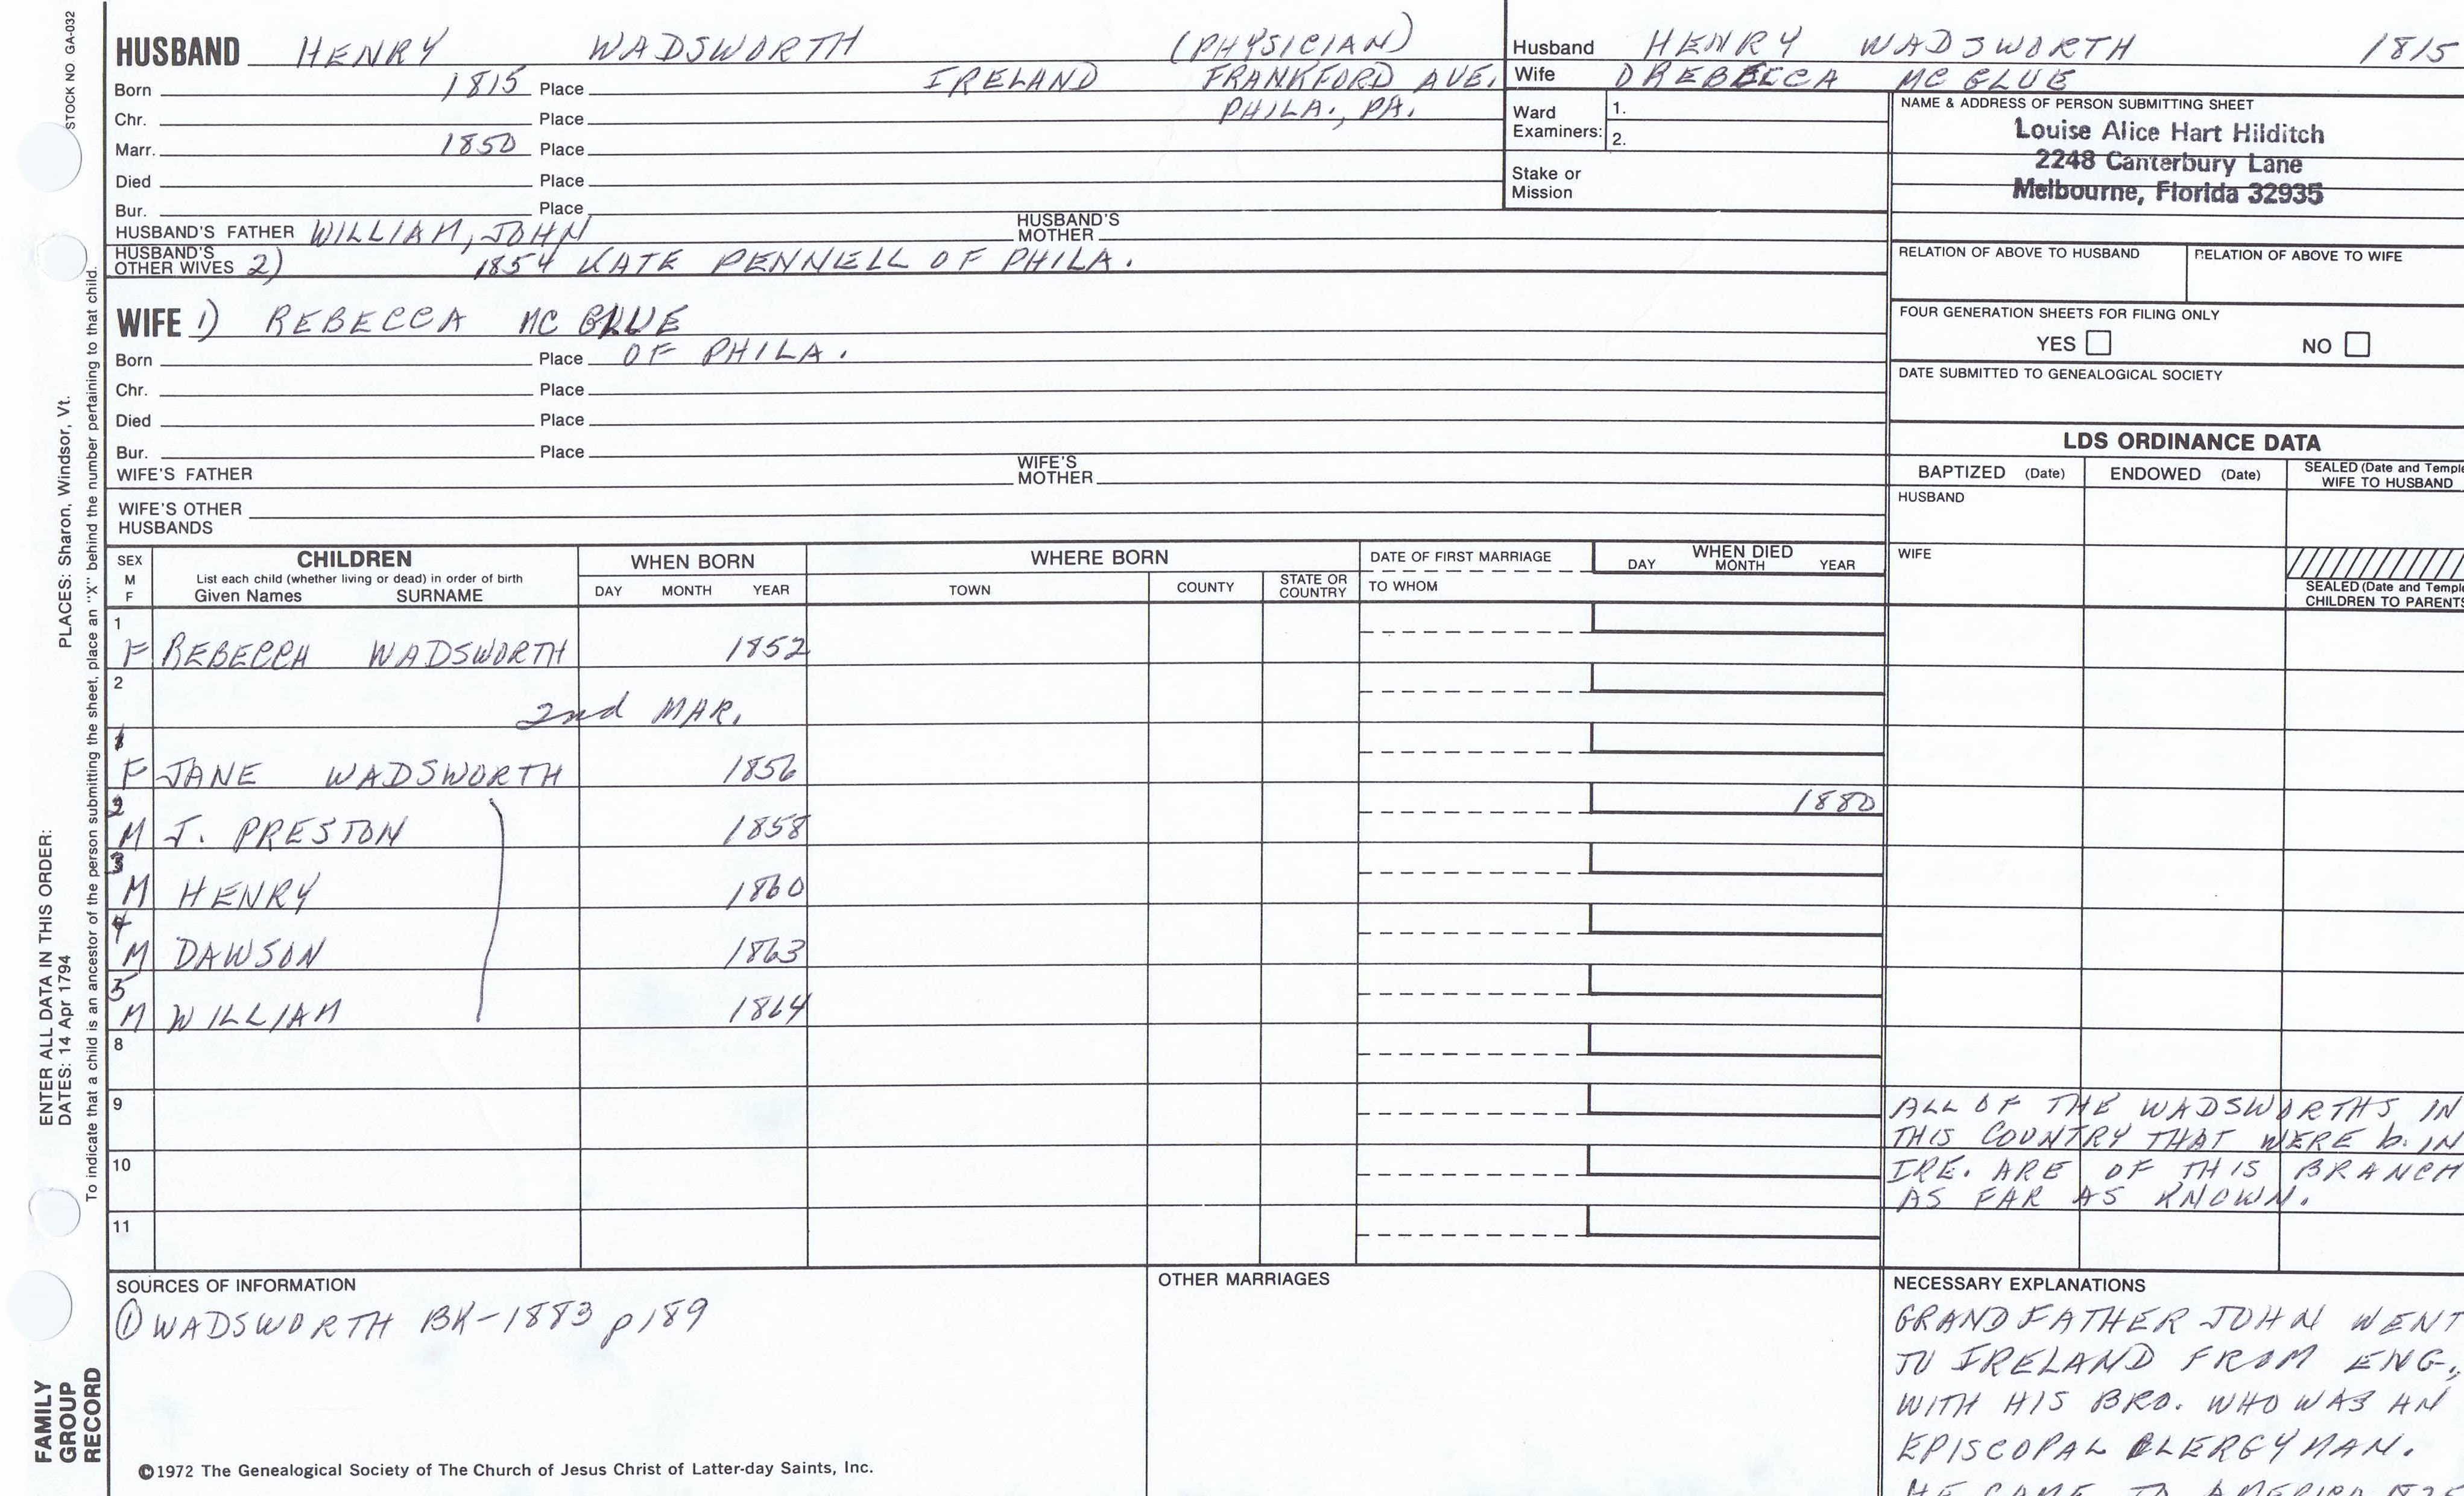 STOCK NO GA-032
HUSBAND HENRY WADSWORTH (PHYSICIAN)
Born 1815 Place IRELAND FRANKFORD AVE.
Chr. Place PHILA., PA.
Marr. 1850 Place
Died Place
Bur. Place
HUSBAND'S FATHER WILLIAM, JOHN HUSBAND'S MOTHER
HUSBAND'S OTHER WIVES 2) 1854 KATE PENNELL OF PHILA.
WIFE 1) REBECCA MC GLUE
Born Place OF PHILA.
Chr. Place
Died Place
Bur. Place
WIFE'S FATHER WIFE'S MOTHER
WIFE'S OTHER HUSBANDS
Husband HENRY WADSWORTH 1815
Wife REBECCA MC GLUE
Ward Examiners: 1.
2.
Stake or Mission
NAME & ADDRESS OF PERSON SUBMITTING SHEET
Louise Alice Hart Hilditch
2248 Canterbury Lane
Melbourne, Florida 32935
RELATION OF ABOVE TO HUSBAND RELATION OF ABOVE TO WIFE
FOUR GENERATION SHEETS FOR FILING ONLY
YES NO
DATE SUBMITTED TO GENEALOGICAL SOCIETY
LDS ORDINANCE DATA
BAPTIZED (Date) ENDOWED (Date) SEALED (Date and Temple
WIFE TO HUSBAND
HUSBAND
WIFE
SEALED (Date and Temple
CHILDREN TO PARENTS
SEX M F CHILDREN WHEN BORN WHERE BORN DATE OF FIRST MARRIAGE WHEN DIED
List each child (whether living or dead) in order of birth
Given Names SURNAME DAY MONTH YEAR TOWN COUNTY STATE OR COUNTRY TO WHOM DAY MONTH YEAR
1
F REBECCA WADSWORTH 1852
2
2nd MAR.
1
F JANE WADSWORTH 1856
2 1880
M J. PRESTON 1858
3
M HENRY 1860
4
M DAWSON 1863
5
M WILLIAM 1864
8
9
10
11
ALL OF THE WADSWORTHS IN
THIS COUNTRY THAT WERE b. IN
IRE. ARE OF THIS BRANCH
AS FAR AS KNOWN.
SOURCES OF INFORMATION
① WADSWORTH BK-1883 p189
OTHER MARRIAGES
NECESSARY EXPLANATIONS
GRANDFATHER JOHN WENT
TO IRELAND FROM ENG.,
WITH HIS BRO. WHO WAS AN
EPISCOPAL CLERGYMAN.
HE CAME TO AMERICA
©1972 The Genealogical Society of The Church of Jesus Christ of Latter-day Saints, Inc.
FAMILY
GROUP
RECORD
ENTER ALL DATA IN THIS ORDER:
DATES: 14 Apr 1794
PLACES: Sharon, Windsor, Vt.
To indicate that a child is an ancestor of the person submitting the sheet, place an "X" behind the number pertaining to that child.